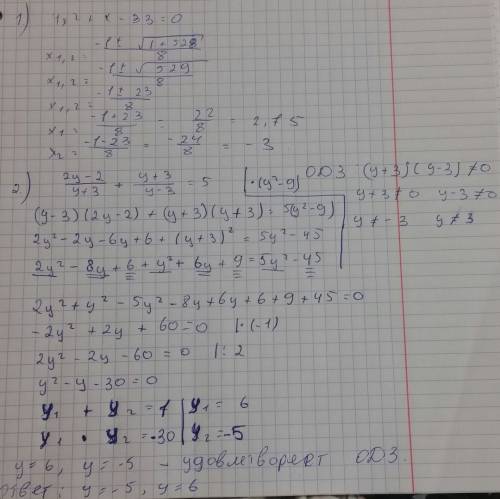 1) 4x² + x - 33 = 0
x₁,₂ = (-1 ± √(1+528))/8
x₁,₂ = (-1 ± √529)/8
x₁,₂ = (-1 ± 23)/8
x₁ = (-1+23)/8 = 22/8 = 2,75
x₂ = (-1-23)/8 = -24/8 = -3
2) (2y-2)/(y+3) + (y+3)/(y-3) = 5 |·(y²-9) ОДЗ (y+3)(y-3)≠0
y+3≠0 y-3≠0
y≠-3 y≠3
(y-3)(2y-2) + (y+3)(y+3) = 5(y²-9)
2y²-2y-6y+6+(y+3)² = 5y²-45
2y²-8y+6+y²+6y+9=5y²-45
2y²+y²-5y²-8y+6y+6+9+45=0
-2y²+2y+60=0 |·(-1)
2y²-2y-60=0 |:2
y²-y-30=0
y₁ + y₂ = 1 | y₁ = 6
y₁ · y₂ = -30 | y₂ = -5
y=6, y=-5 - удовлетворяет ОДЗ.
ответ: y=-5, y=6